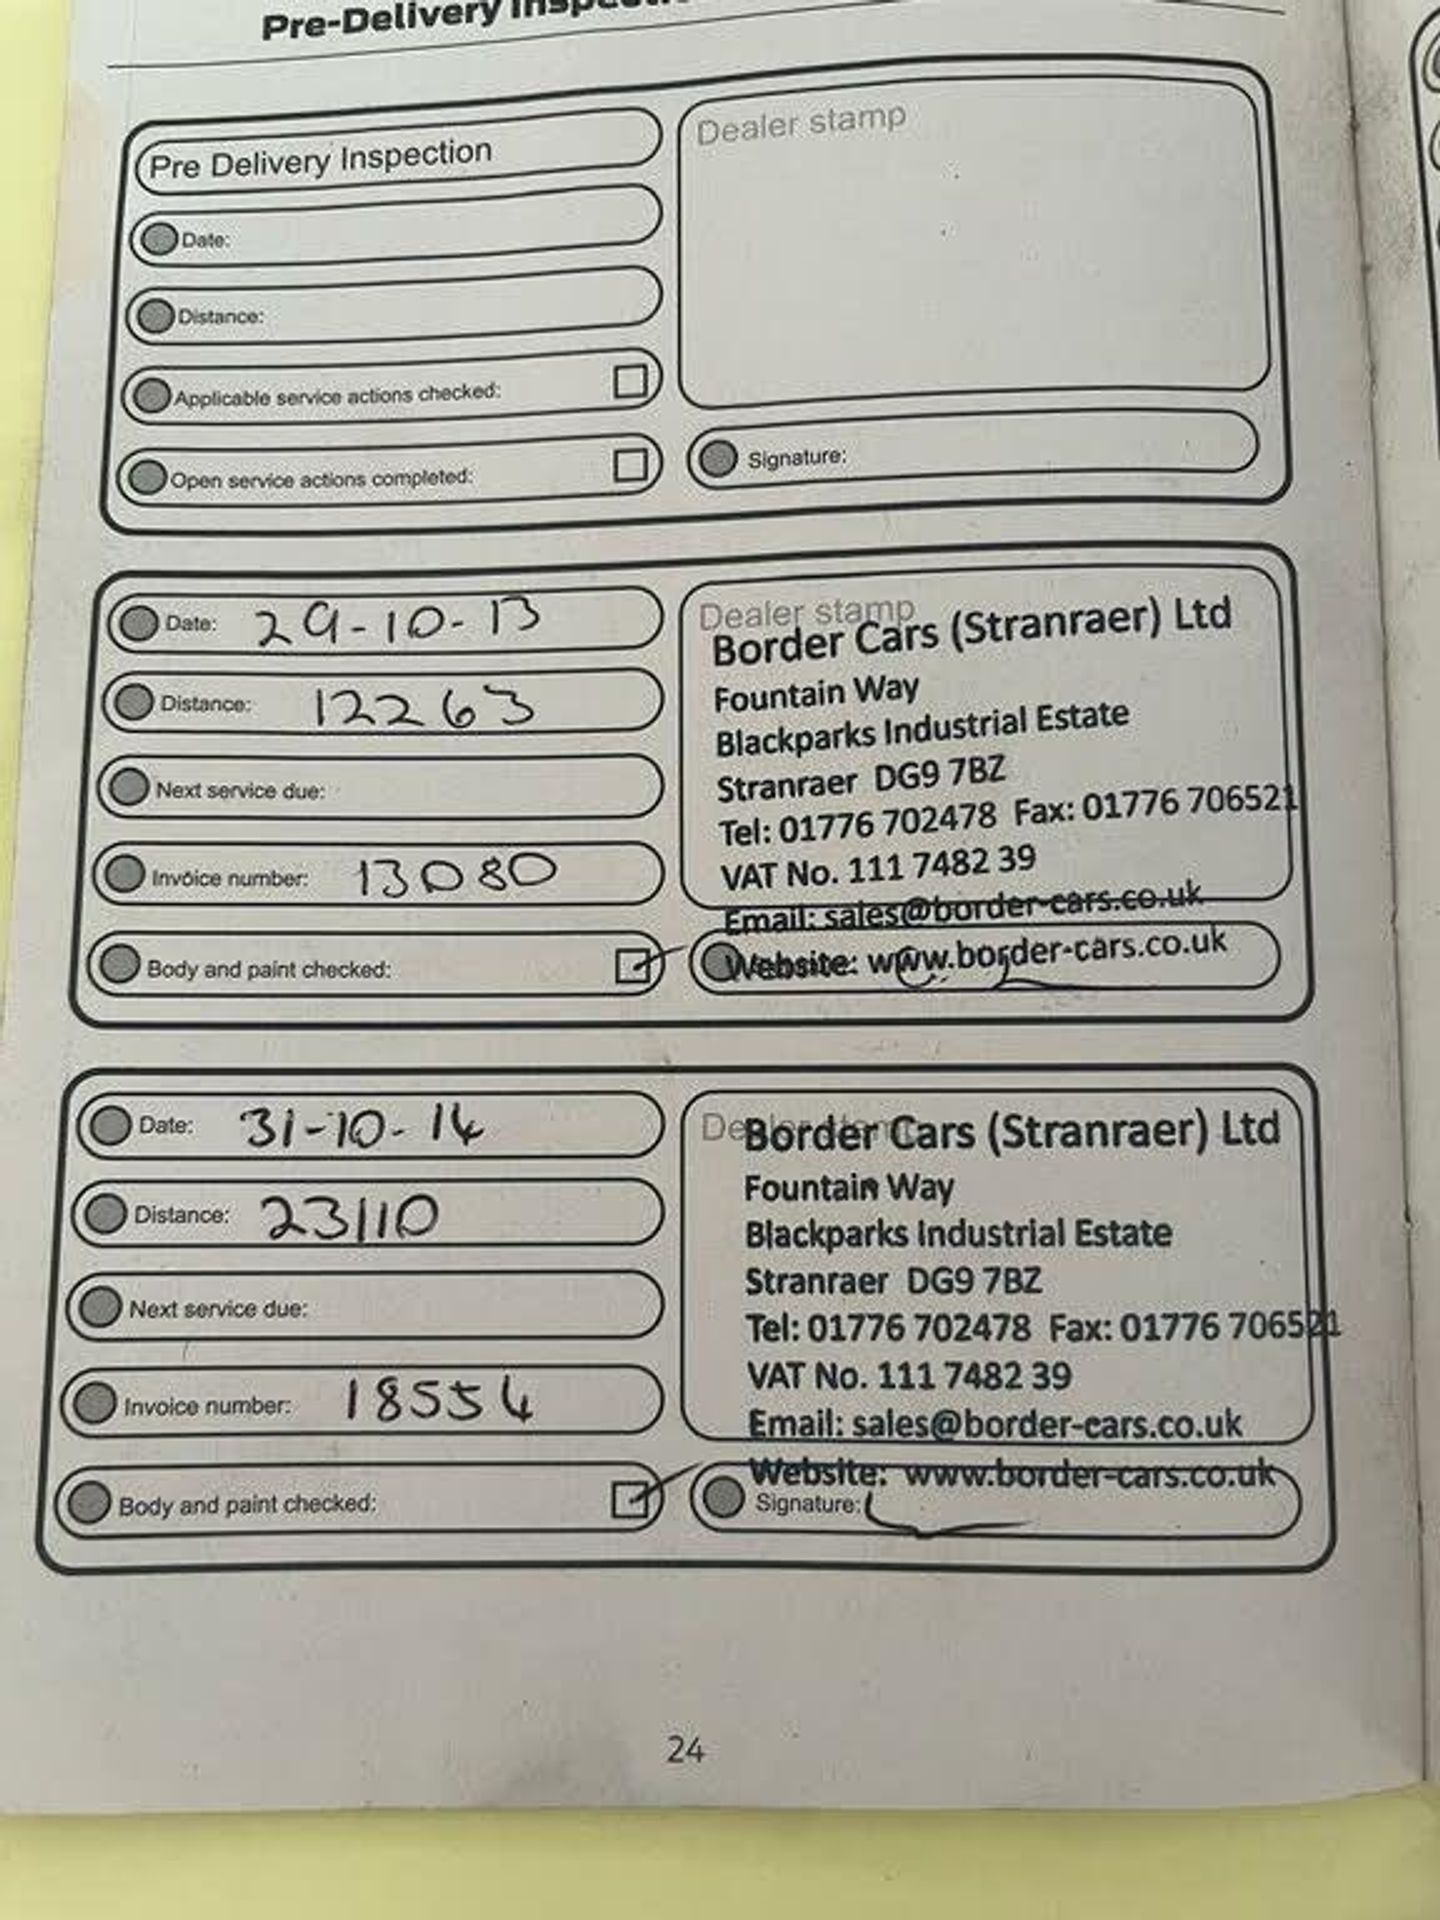 Pre-Delivery Inspecti
Pre Delivery Inspection
Date:
Distance:
Applicable service actions checked:
Open service actions completed:
Dealer stamp
Signature:
Date: 29-10-13
Distance: 12263
Next service due:
Invoice number: 13080
Body and paint checked:
Dealer stamp
Border Cars (Stranraer) Ltd
Fountain Way
Blackparks Industrial Estate
Stranraer DG9 7BZ
Tel: 01776 702478 Fax: 01776 706521
VAT No. 111 7482 39
Email: sales@border-cars.co.uk
Website: www.border-cars.co.uk
Date: 31-10-14
Distance: 23110
Next service due:
Invoice number: 18554
Body and paint checked:
Dealer stamp
Border Cars (Stranraer) Ltd
Fountain Way
Blackparks Industrial Estate
Stranraer DG9 7BZ
Tel: 01776 702478 Fax: 01776 706521
VAT No. 111 7482 39
Email: sales@border-cars.co.uk
Website: www.border-cars.co.uk
Signature:
24